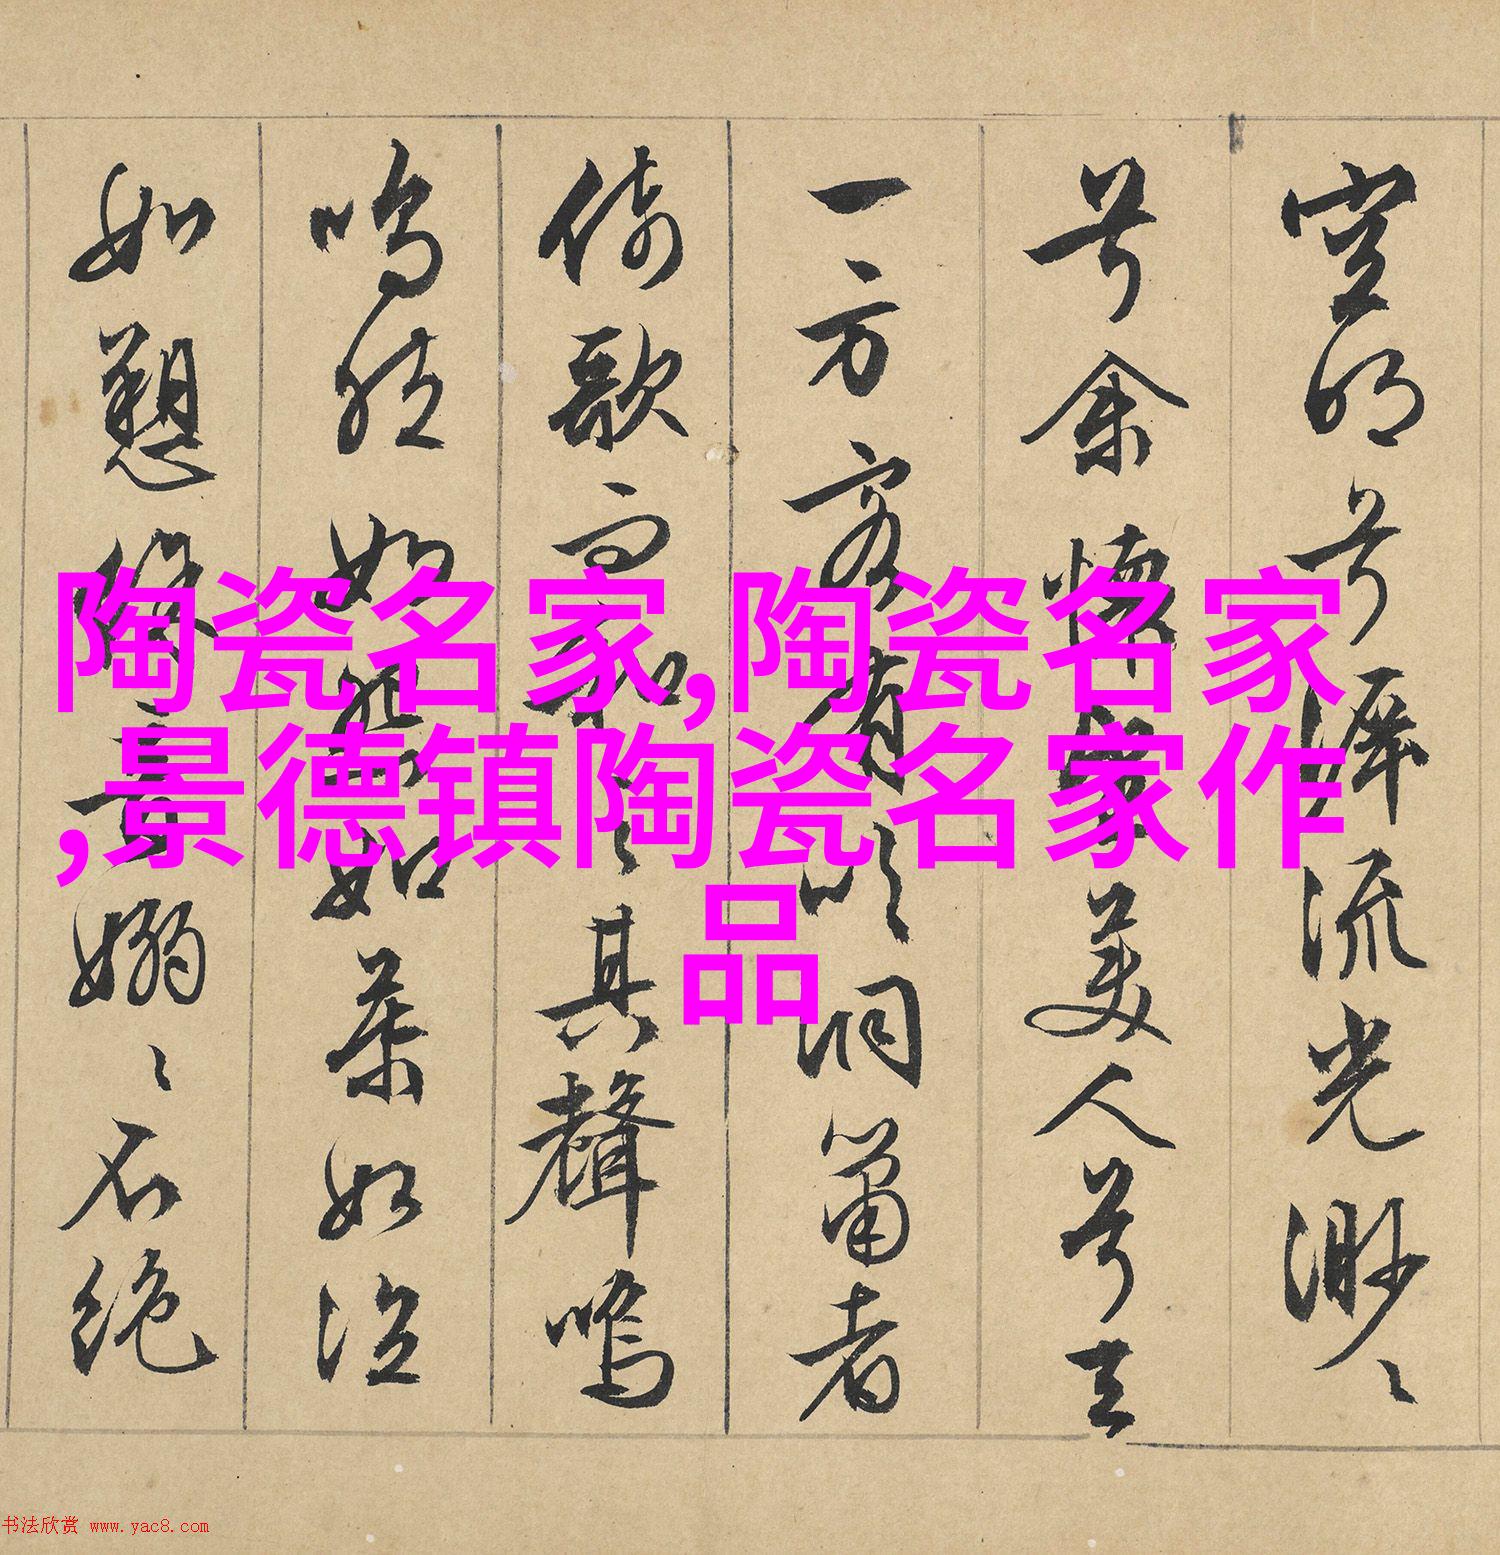 空明兮泝流光渺〻
兮余懷望美人兮天
一方客有吹洞簫者
倚歌而和之其聲嗚
嗚然如怨如慕如泣
如愬餘音嫋〻不絕
陶瓷名家,陶瓷名家
,景德镇陶瓷名家作
品
书法欣赏 www.yac8.com